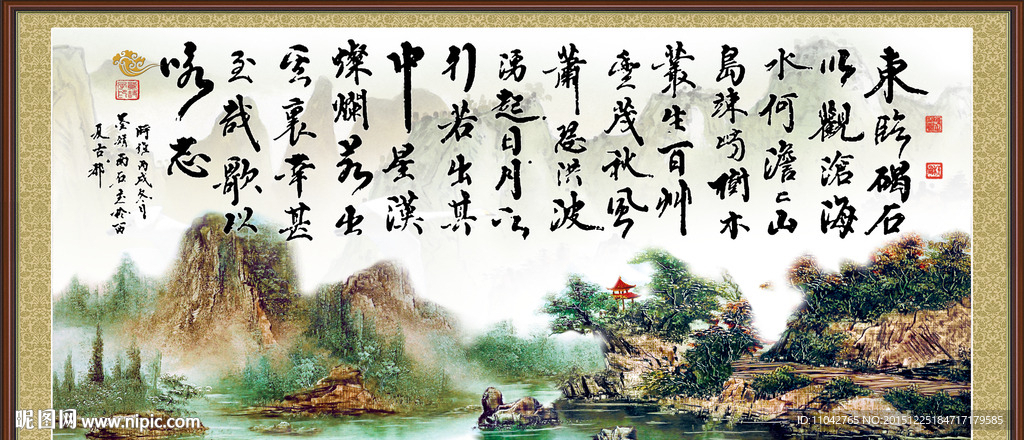 東臨碣石
以觀滄海
水何澹〻山
島竦峙樹木
叢生百艸
豐茂秋風
蕭瑟洪波
湧起日月之
行若出其
中星漢
燦爛若出
其裏幸甚
至哉歌以
咏志
時維丙戌冬月
夏古都
昵图网 www.nipic.com
ID:11042765 NO:20151225184717179585